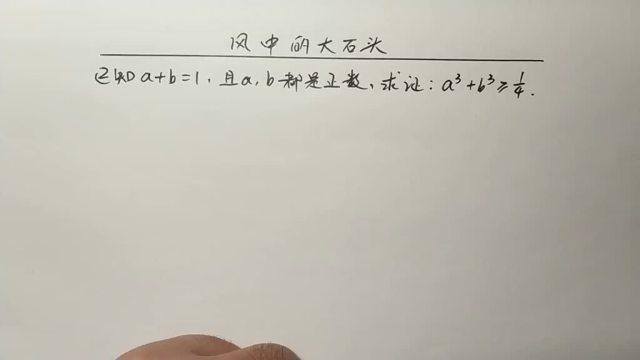 风中的大石头
已知a+b=1,且a,b都是正数,求证:a³+b³≥1/4.